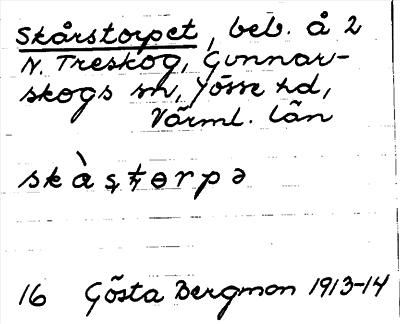 Skårstorpet, beb. å 2
N. Treskog, Gunnar-
skogs sn, Jösse hd,
Värml. län
skàʂʈɵrpə
16 Gösta Bergman 1913-14